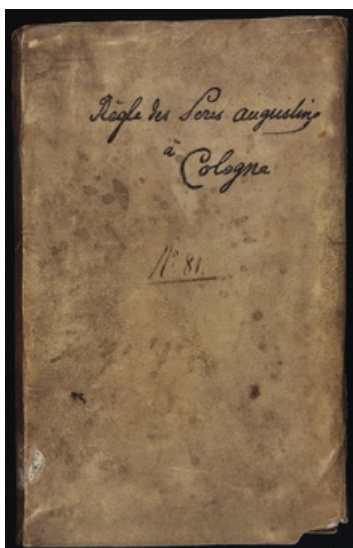 Règle des Peres augustins
à
Cologne
N° 81.